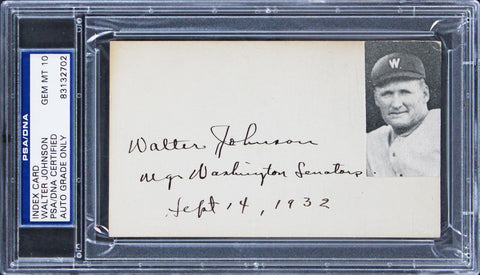 PSA/DNA
GEM MT 10
83132702
INDEX CARD
WALTER JOHNSON
PSA/DNA CERTIFIED
AUTO GRADE ONLY
W
Walter Johnson
Mgr Washington Senators.
Sept 14, 1932